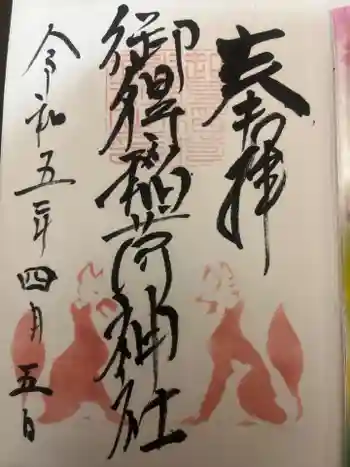 奉拝
御嶽稲荷神社
令和五年四月五日